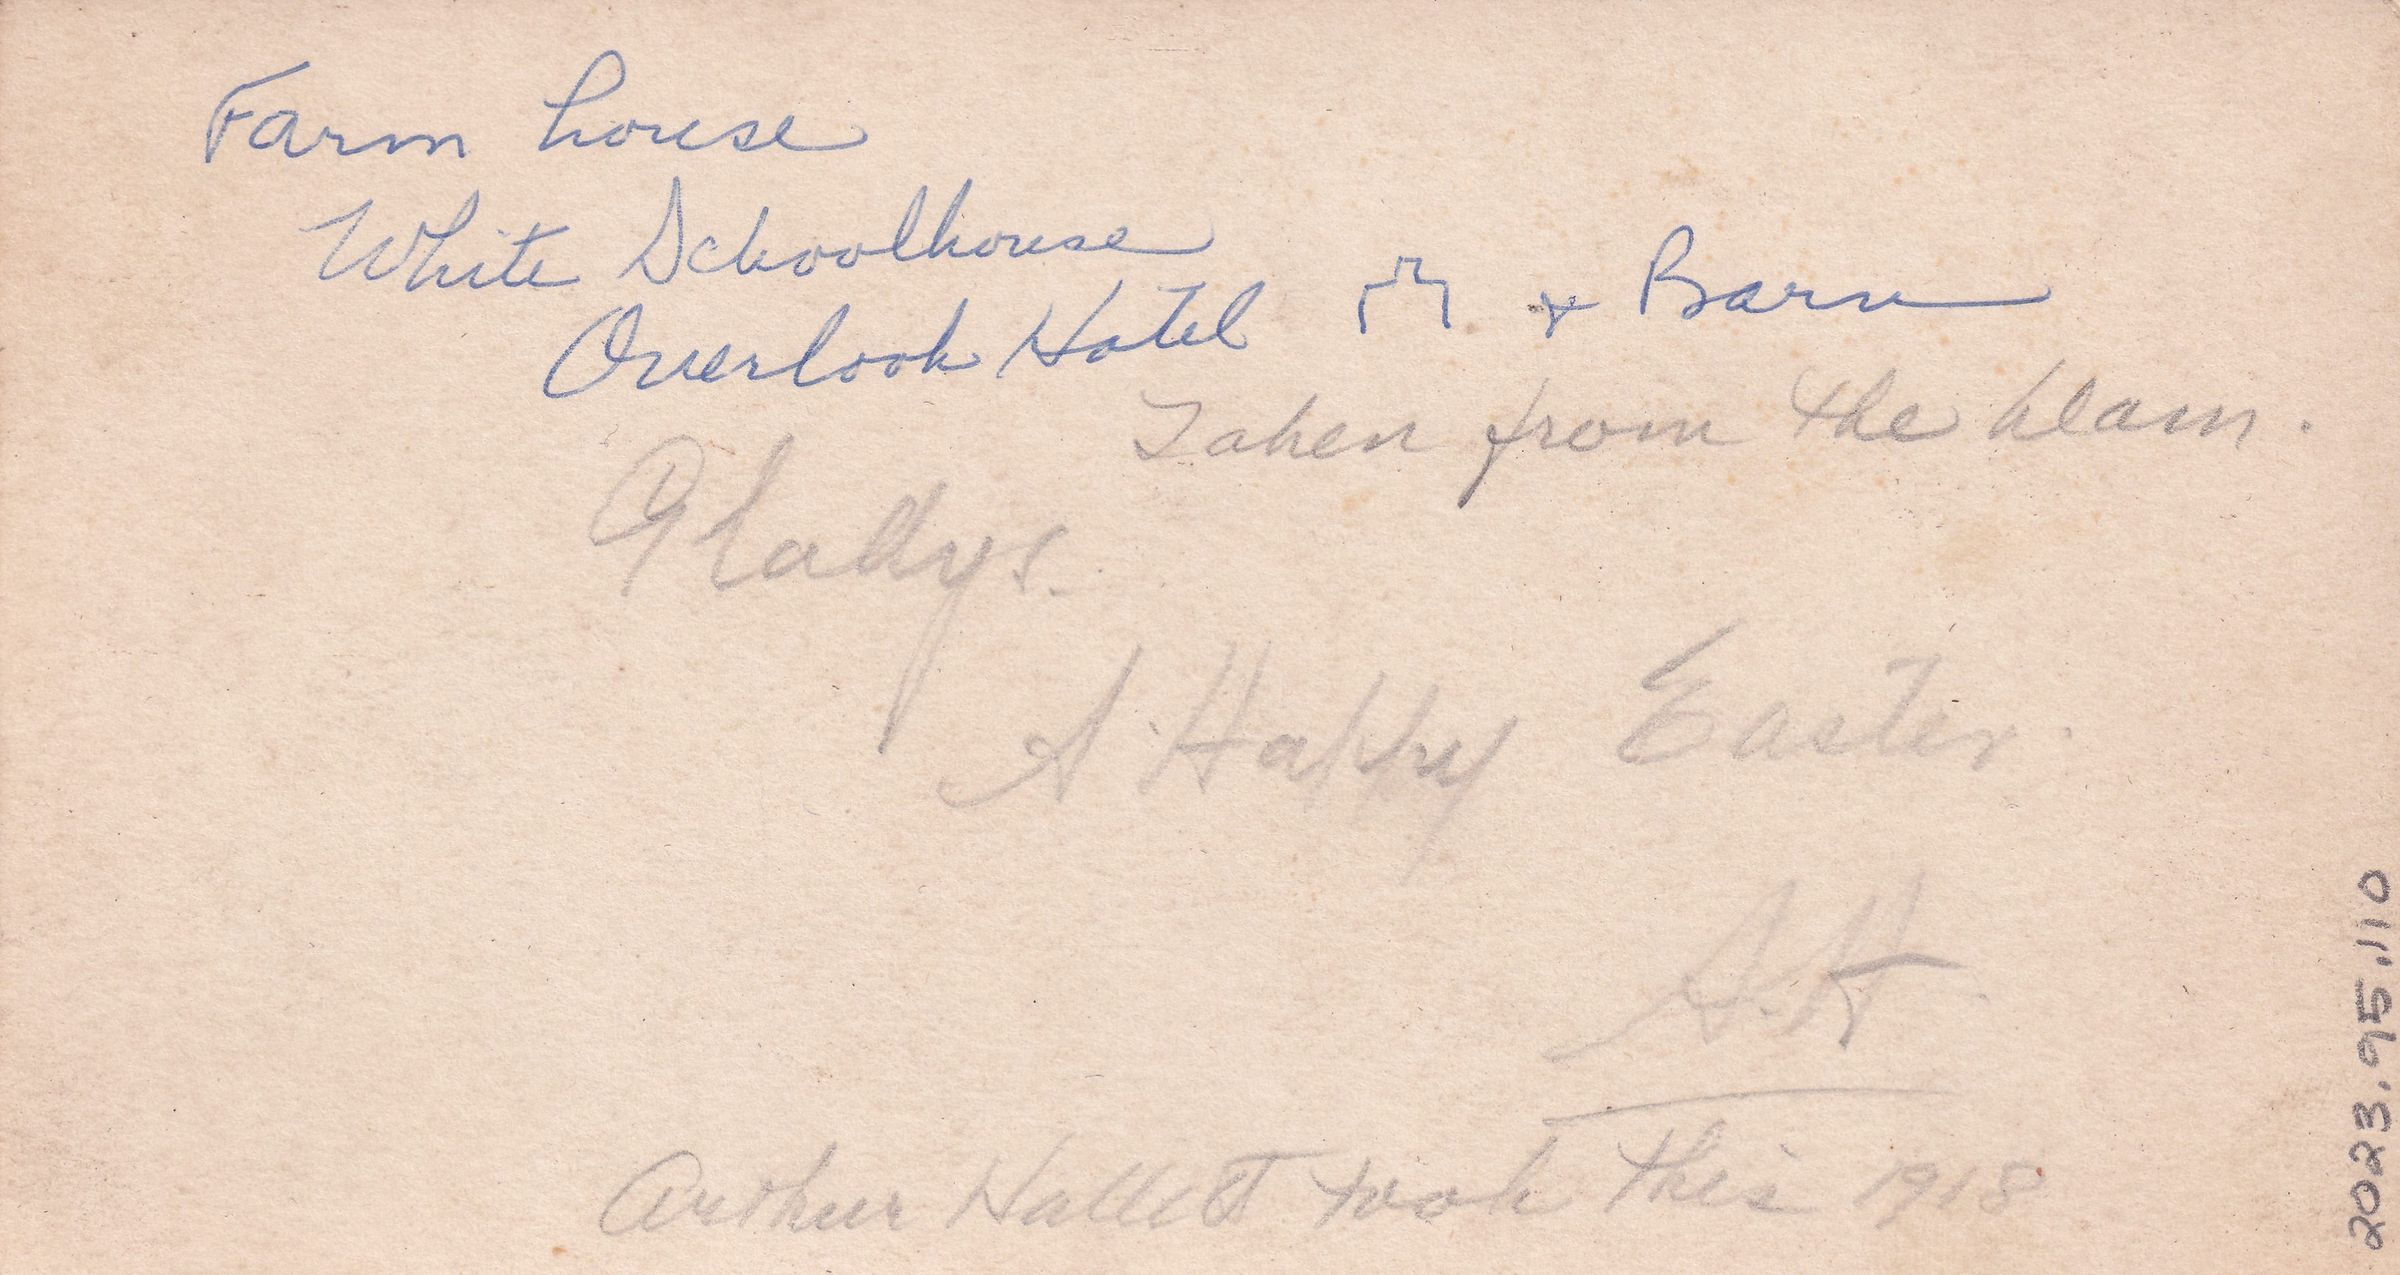 Farm house
White Schoolhouse
Overlook Hotel & Barn
Taken from the
Gladys.
A Happy Easter.
A.H.
Arthur Hallett took this 1918
2023.95.110